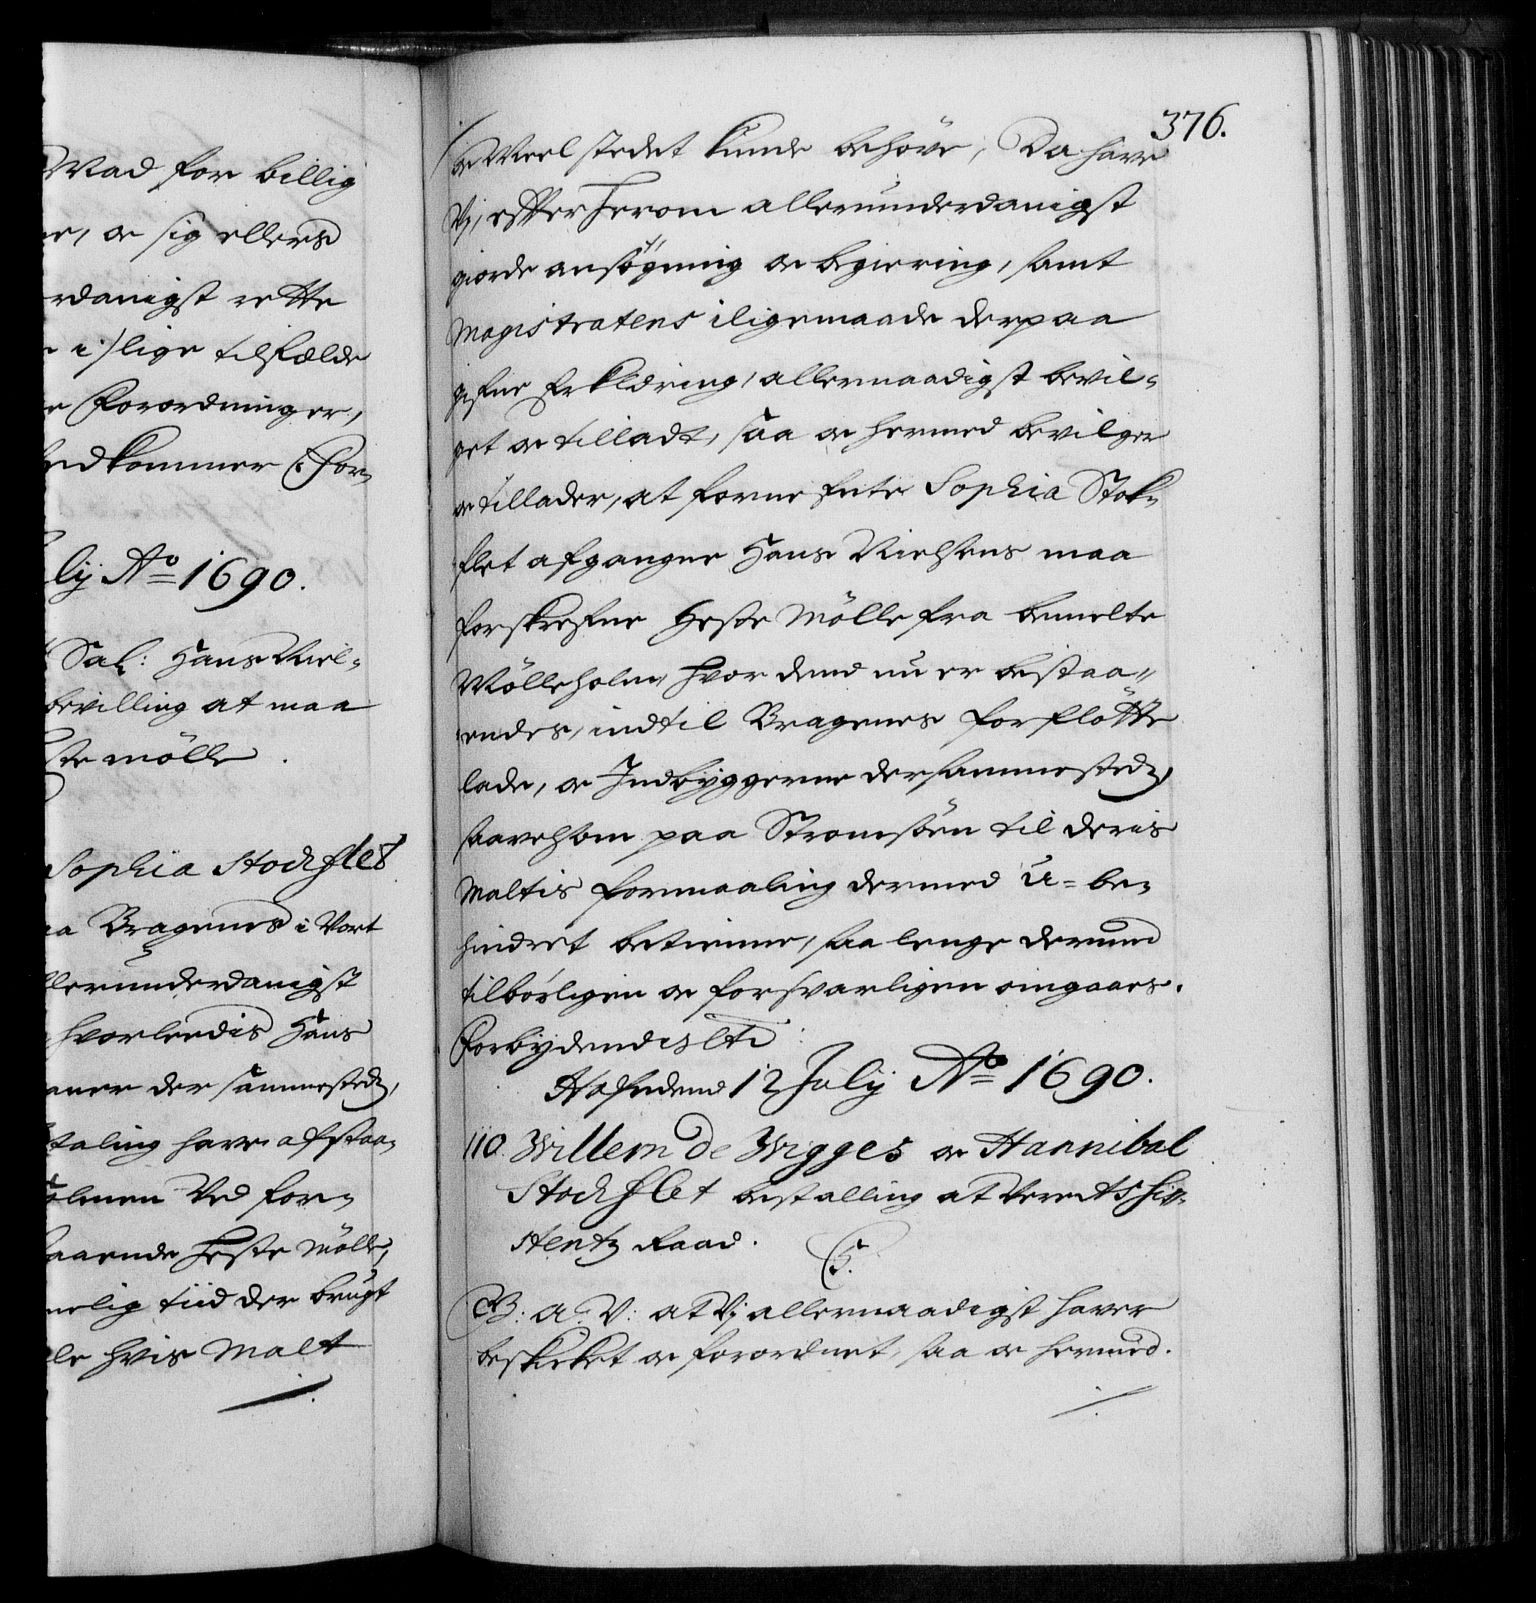 Mad for billig
ne, oc sig ellers
rdanigst rette
e i slige tilfælde
e Forordninger,
edkommer. For-
lij Ao 1690.
Sal: Hans Niel-
bevilling at maa
ste mölle.
Sophia Stockflet
aa Bragernes i Vort
llerunderdanigst
hvorledis Hans
aner der sammestedz,
taling haver afstaa-
olmen Ved for-
staaende Heste Mölle,
melig tiid der brugt
le hvis Malt
376.
oc Meel stedet kunde behöve, Da have
Vj, efter herom allerunderdanigst
giorde ansögning oc begiering, samt
Magistratens iligemaade derpaa
gifne Erklæring, allernaadigst bevil-
get oc tilladt, saa oc hermed bevilger
oc tillader, at forne Enke Sophia Stok-
flet afgangne Hans Nielsens maa
forskrefne Heste Mölle fra bemelte
Mölleholm, hvor dend nu er bestaa-
endes, indtil Bragenes forflötte
lade, oc Indbyggerne dersammestedz,
saavelsom paa Stromsöen til deris
Maltis formaaling dermed u-be-
hindret betienne, saa lenge dermed
tilbörligen oc forsvarligen omgaaes.
Forbydendis etc:
Hafn dend 12 July Ao 1690.
110. Willem De Wigges oc Hannibal
Stockflet bestalling at Vere Assi-
stentz Raad.
C5.
G: A: V: at Vj allernaadigst haver
beskicket oc forordnet, saa oc hermed